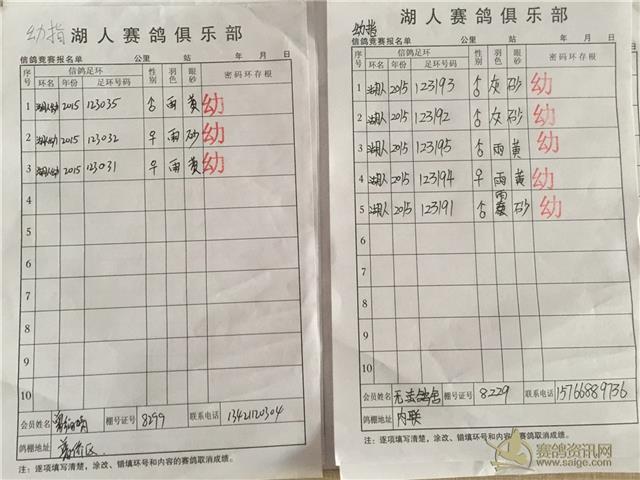 幼指 湖人赛鸽俱乐部
信鸽竞赛报名单 公里 站 年 月 日
序号 信鸽足环 性别 羽色 眼砂 密码环存根
环名 年份 足环号码
1 湖人 2015 123035 雨 黄 幼
2 湖人 2015 123032 雨 砂 幼
3 湖人 2015 123031 雨 黄 幼
4
5
6
7
8
9
10
会员姓名 棚号证号 8299 联系电话 13421120304
鸽棚地址
注：逐项填写清楚，涂改、错填环号和内容的赛鸽取消成绩。
幼指 湖人赛鸽俱乐部
信鸽竞赛报名单 公里 站 年 月 日
序号 信鸽足环 性别 羽色 眼砂 密码环存根
环名 年份 足环号码
1 湖人 2015 123193 灰 砂 幼
2 湖人 2015 123192 灰 砂 幼
3 湖人 2015 123195 雨 黄 幼
4 湖人 2015 123194 雨 黄 幼
5 湖人 2015 123191 雨 砂 幼
6
7
8
9
10
会员姓名 鸽舍 棚号证号 8229 联系电话 15766889736
鸽棚地址 内联
注：逐项填写清楚，涂改、错填环号和内容的赛鸽取消成绩。
赛鸽资讯网
www.saige.com